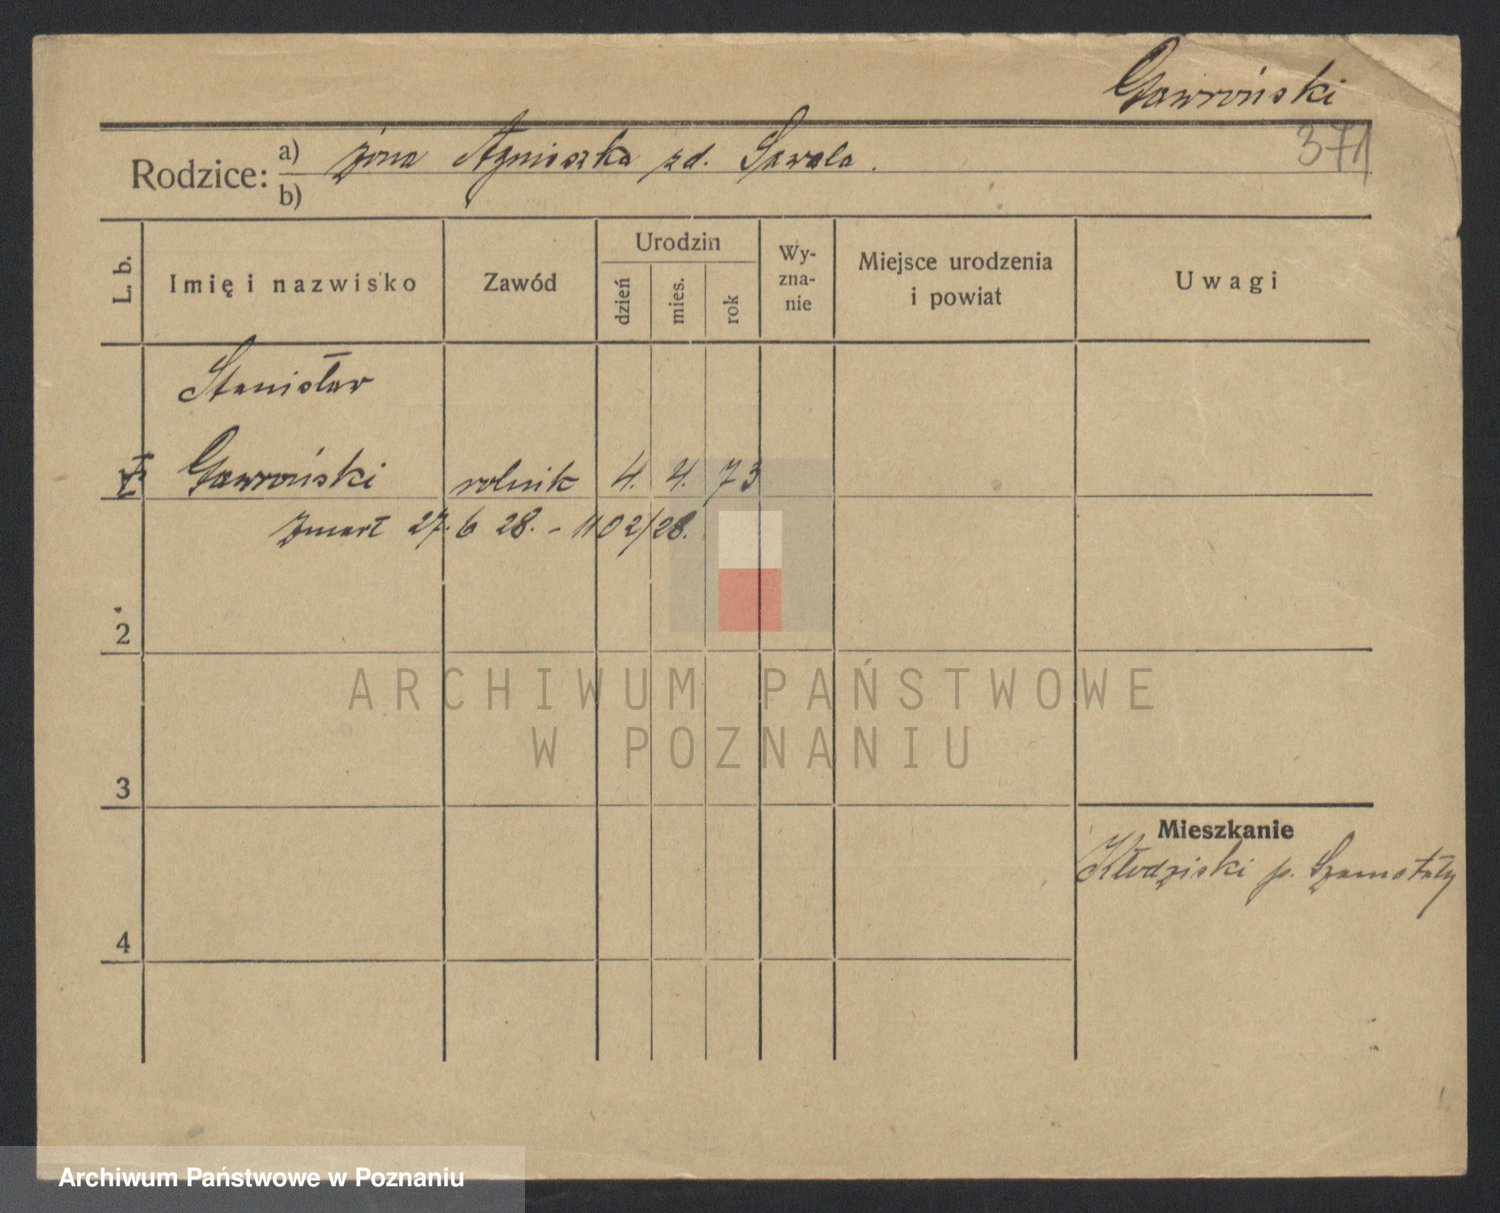 Gawroński
371
Rodzice: a) żona Agnieszka zd. Sawala.
b)
L. b.
Imię i nazwisko
Zawód
Urodzin
dzień
mies.
rok
Wy-
zna-
nie
Miejsce urodzenia
i powiat
Uwagi
Stanisław
1 Gawroński rolnik 4. 4. 73
zmarł 27.6 28. - 1102/28.
2
3
4
Mieszkanie
Kłodziski p. Szamotuły
ARCHIWUM PAŃSTWOWE
W POZNANIU
Archiwum Państwowe w Poznaniu